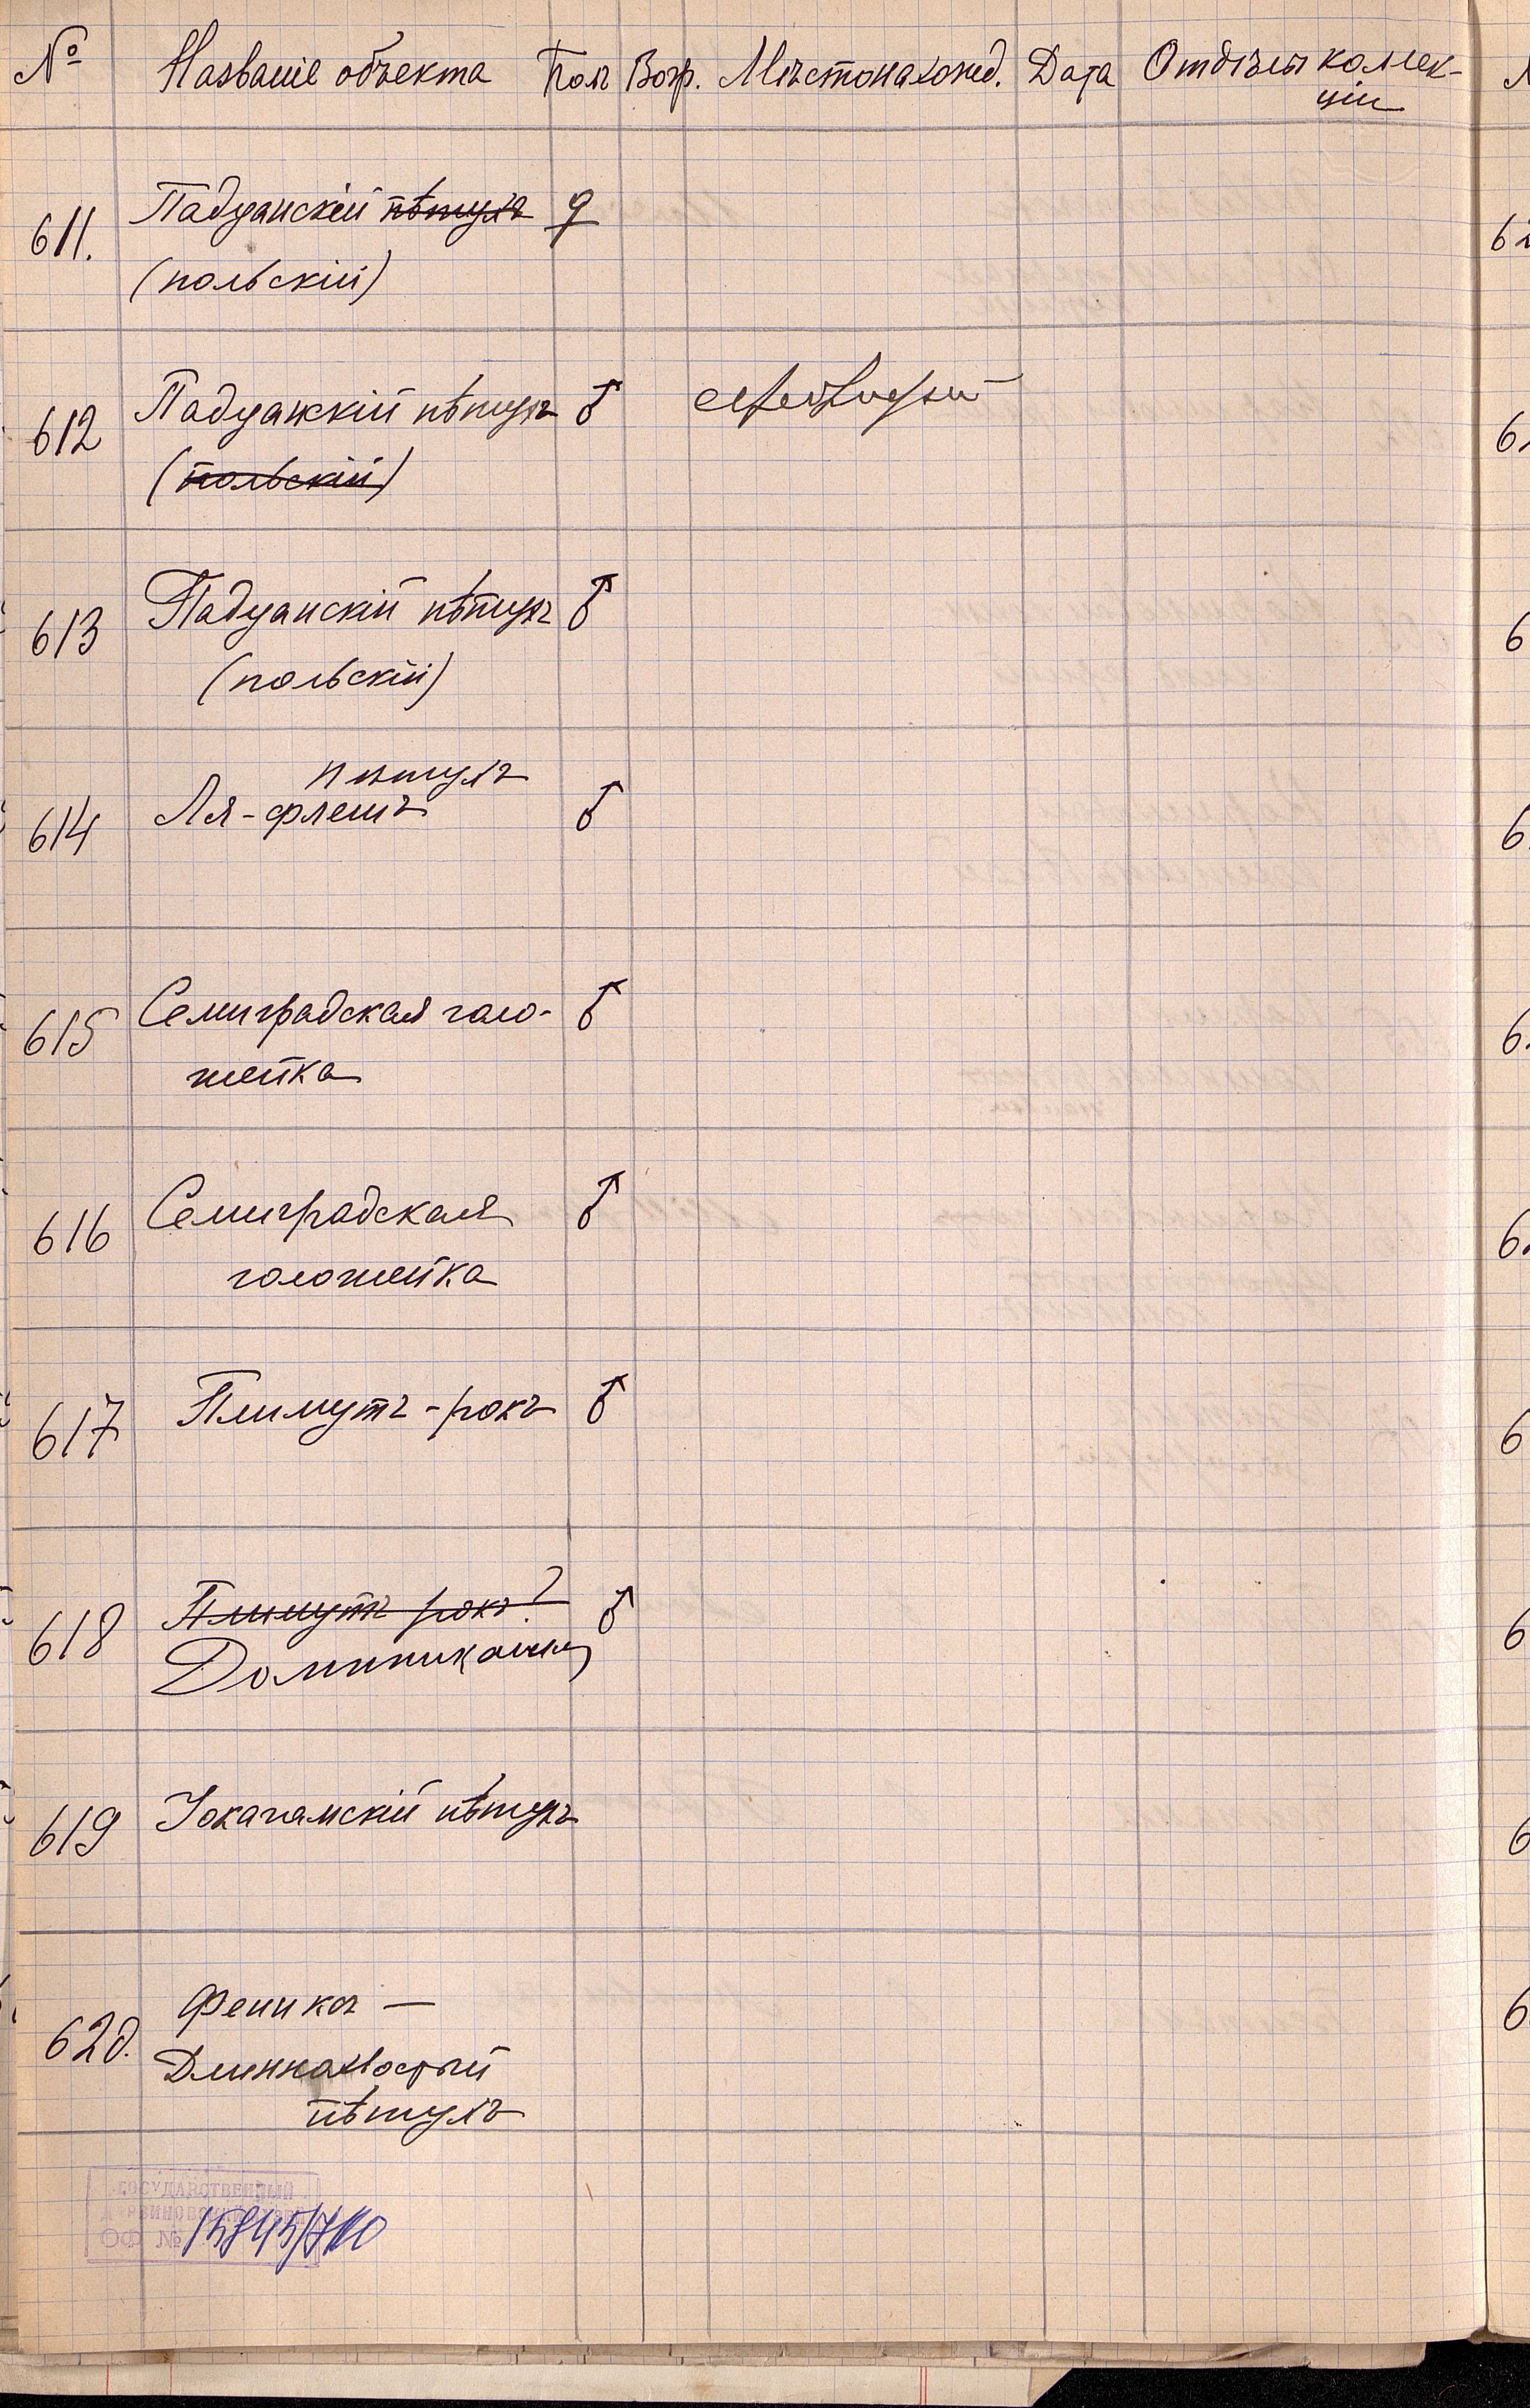 № Названіе объекта Полъ Возр. Мѣстонахожд. Дата Отдѣлъ коллек-
ціи
611. Падуанскій пѣтухъ ♀
(польскій)
612 Падуанскій пѣтухъ ♂
(польскій)
613 Падуанскій пѣтухъ ♂
(польскій)
пѣтухъ
614 Ля-флешъ ♂
615 Семиградская голо- ♂
шейка
616 Семиградская ♂
голошейка
617 Плимутъ-рокъ ♂
618 Плимутъ рокъ? ♂
Доминиканец
619 Іокагамскій пѣтухъ
620. Фениксъ —
Длиннохвостый
пѣтухъ
ГОСУДАРСТВЕННЫЙ
ДАРВИНОВСКИЙ МУЗЕЙ
ОФ №